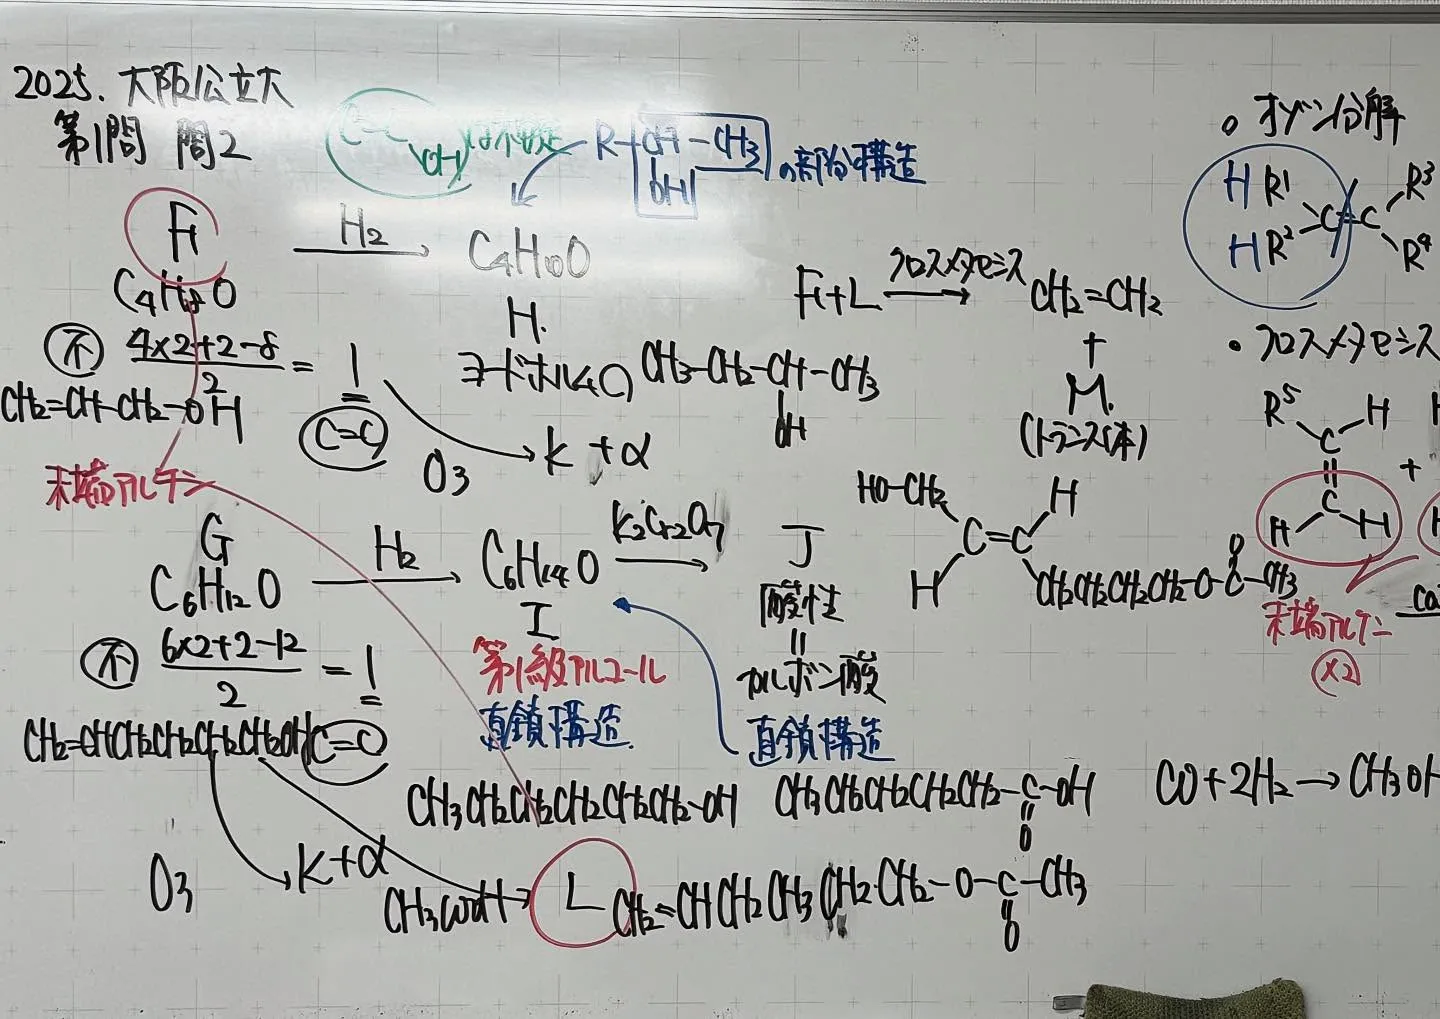 2025. 大阪公立大
第1問 問2
C=C OH は不安定
R-CH-CH3 の部分構造
OH
F
H2
C4H8O
C4H10O
H.
ヨードホルム○ CH3-CH2-CH-CH3
OH
不 4×2+2-8 = 1
2
C=C
CH2=CH-CH2-OH
末端アルケン
O3
K+α
F+L クロスメタセシス CH2=CH2
+
M.
(トランス体)
HO-CH2 H
C=C
H CH2CH2CH2CH2-O-C-CH3
O
G
C6H12O
H2
C6H14O
I
K2Cr2O7
J
酸性
=
カルボン酸
直鎖構造
第1級アルコール
直鎖構造
不 6×2+2-12 = 1
2
CH2=CHCH2CH2CH2CH2OH C=C
CH3CH2CH2CH2CH2CH2-OH
CH3CH2CH2CH2CH2-C-OH
O
O3
K+α
CH3COOH
L CH2=CHCH2CH3CH2CH2-O-C-CH3
O
○ オゾン分解
H R1 R3
C=C
H R2 R4
• クロスメタセシス
R5 H
C
C
H H
+
末端アルケン
×2
CO+2H2→CH3OH